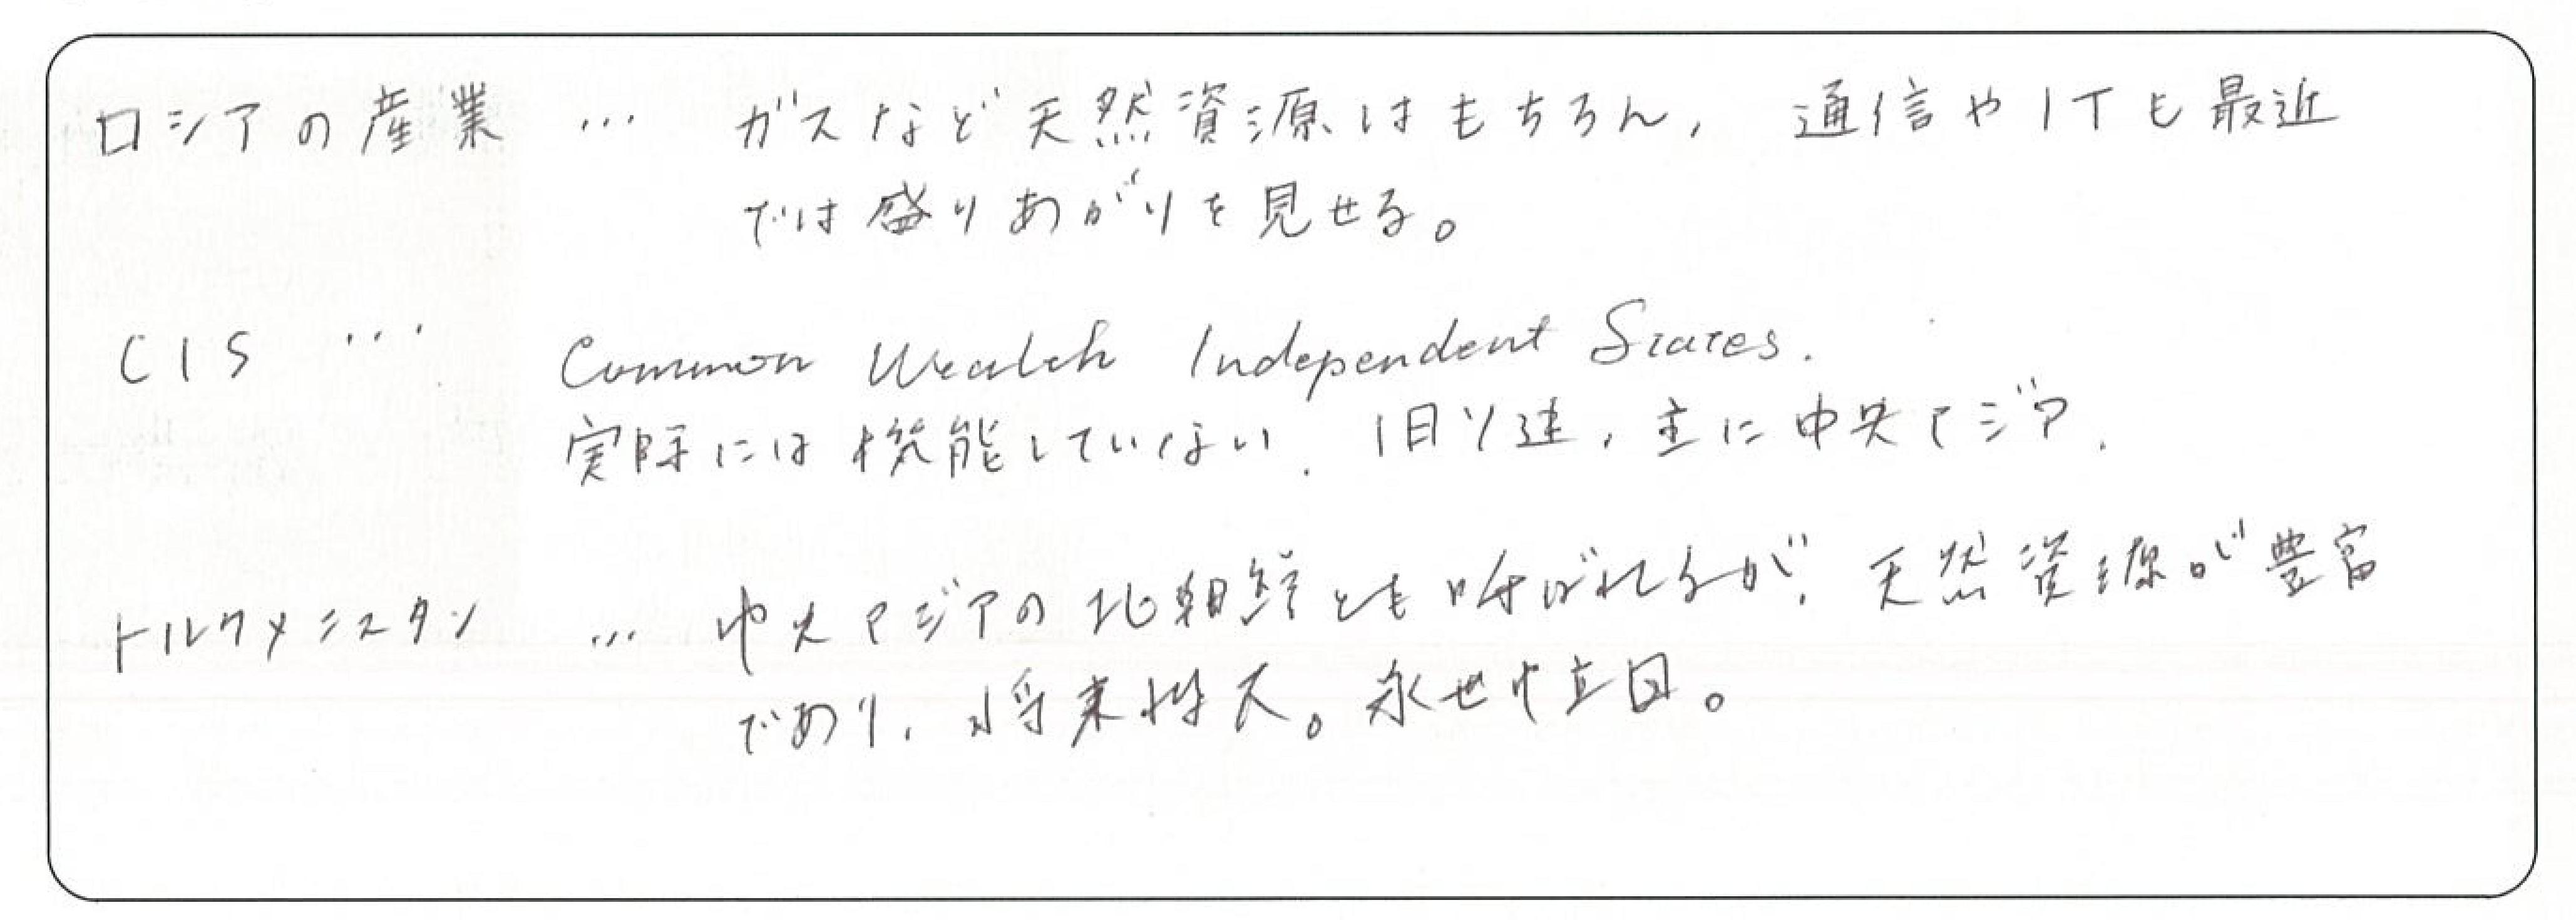 ロシアの産業 … ガスなど天然資源はもちろん, 通信やITも最近
では盛りあがりを見せる。
CIS … Common Wealth Independent States.
実際には機能していない. 旧ソ連, 主に中央アジア.
トルクメニスタン … 中央アジアの北朝鮮とも呼ばれるが, 天然資源が豊富
であり, 将来性大。永世中立国。